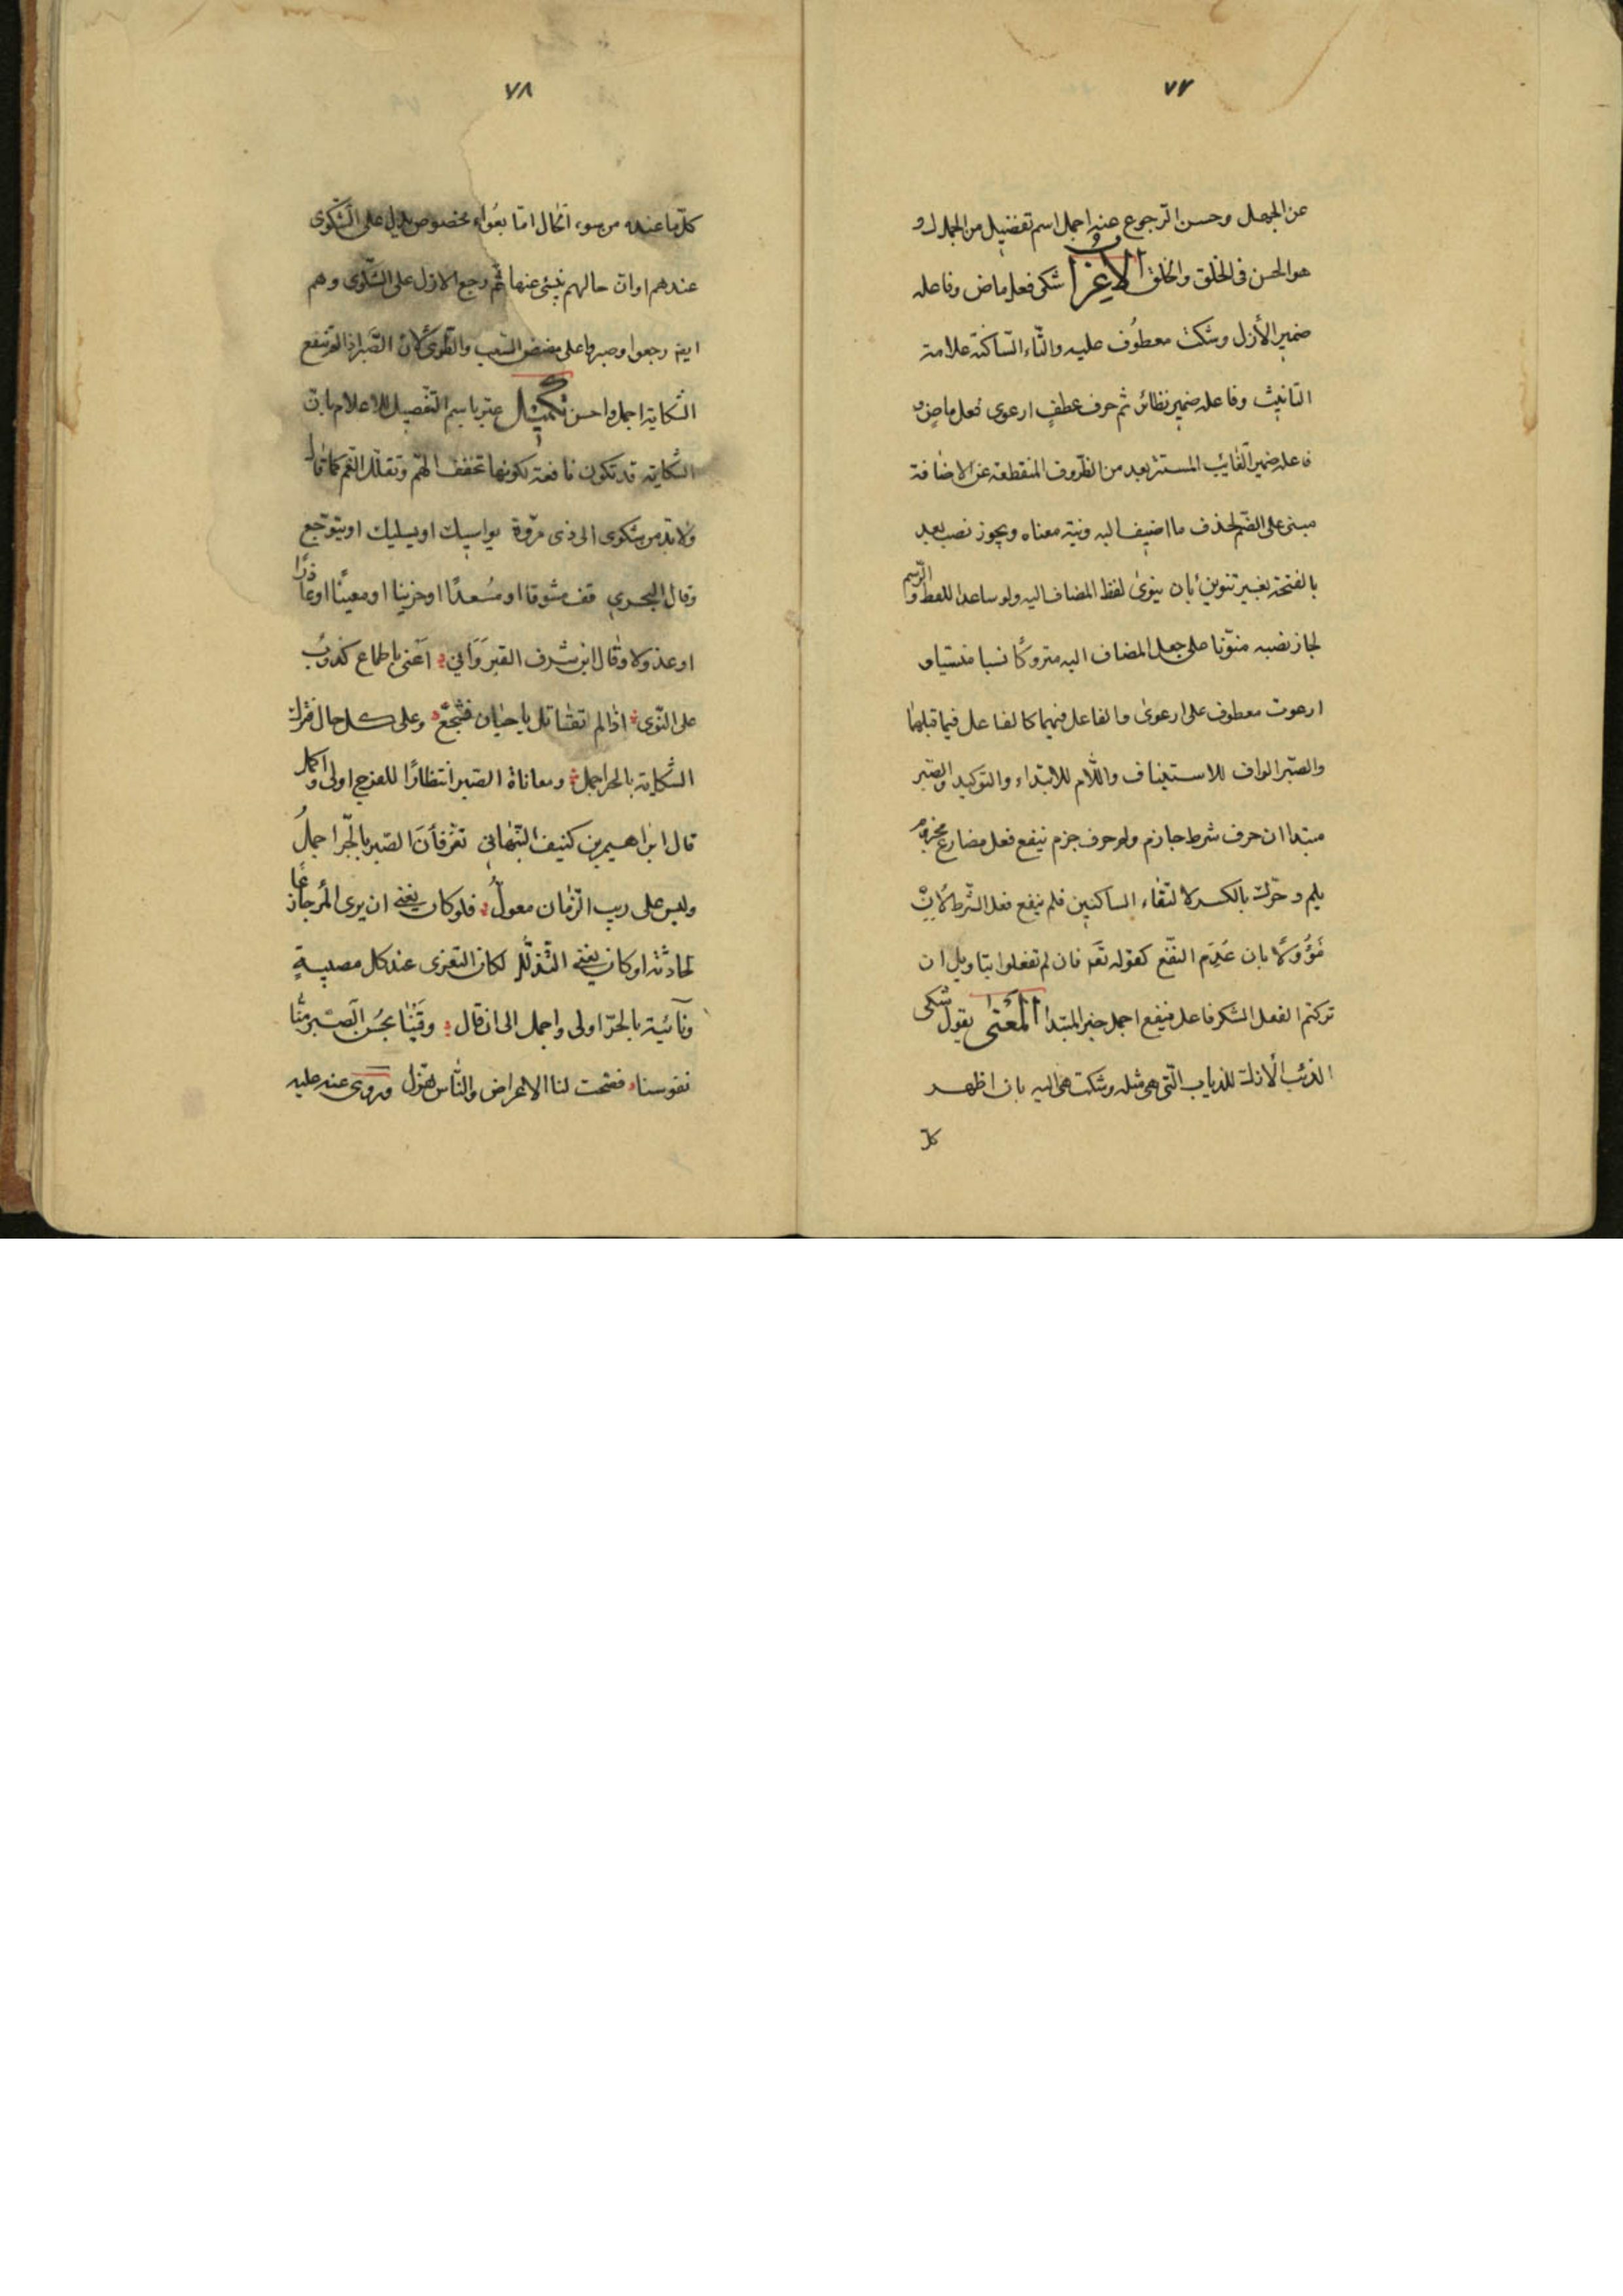 ٧٧
عن الجهل وحسن الرجوع عنه اجمل اسم تفضيل من الجمال و
هو الحسن فى الخلق والخلق الاعراب شكى فعل ماض وفاعله
ضمير الأزل وشكت معطوف عليه والتّاء السّاكنة علامة
التانيث وفاعله ضمير نظائر ثم حرف عطف ارعوى فعل ماض و
فاعله ضمير الغايب المستتر بعد من الظروف المنقطعة عن الاضافة
مبنى على الضّم لحذف ما اضيف اليه ونية معناه ويجوز نصب بعد
بالفتحة بغير تنوين بان ينوى لفظ المضاف اليه ولو ساعد اللفظ والرّسم
لجاز نصبه منوّنا على جعل المضاف اليه متروكًا نسيا منسيا و
ارعوت معطوف على ارعوى والفاعل فيهما كالفاعل فيما قبلهما
والصّبر الواو للاستيناف واللّام للابتداء والتوكيد والصّبر
مبتدا ان حرف شرط جازم ولم حرف جزم ينفع فعل مضارع مجزوم
بلم وحرّك بالكسر لالتقاء الساكنين فلم ينفع فعل الشرط لأن
مُؤوّلًا بان عَدِم النّفع كقوله تعَ فان لم تفعلوا بتاويل ان
تركتم الفعل الشكو فاعل ينفع اجمل خبر المبتدا المعنى يقول شكى
الذئب الأزل للذياب الّتى هى مثله وشكت هى اليه بان اظهر
كلّ
٧٨
كلّ ما عنده من سوء الحال امّا بعُواء مخصوص يدل على الشّكوى
عندهم او ان حالهم ينبئ عنها ثم رجع الازل على الشّكوى وهم
ايضا رجعوا وصبروا على مضض السّغب والطوى لان الصّبر اذا لم تنفع
الشكاية اجمل واحسن تكميل عبّر باسم التفضيل للاعلام بانّ
الشكاية قد تكون نافعة لكونها تخفف الهمّ وتقلّل الغم كما قال
ولابدّ من شكوى الى ذى مروّة يواسيك او يسليك او يتوجّع
وقال البحرى قف مشوقا او مُسعدًا او حزينا او معينًا او عاذرًا
او عذولا وقال ابن شرف القيرَوَانى اَعنى باطماع كذوب
على النّوى اذا لم تقاتل يا جبان فشجّع وعلى كل حال فترك
الشكاية بالحر اجمل ومعاناة الصّبر انتظارًا للفرج اولى واكمل
قال ابراهيم بن كنيف النّبهانى تعَزّ فأنّ الصّبر بالحرّ اجملُ
وليس على ريب الزّمان معولُ فلو كان يغنى ان يرى المرء جازعًا
لحادثة او كان يغنى التّذلّل لكان التعزى عند كل مصيبةٍ
ونائبة بالحرّ اولى واجمل الى ان قال وقَينا بحُسن الصّبر منّا
نفوسنا فصحت لنا الاعراض والنّاس هزّل وروى عنه عليه